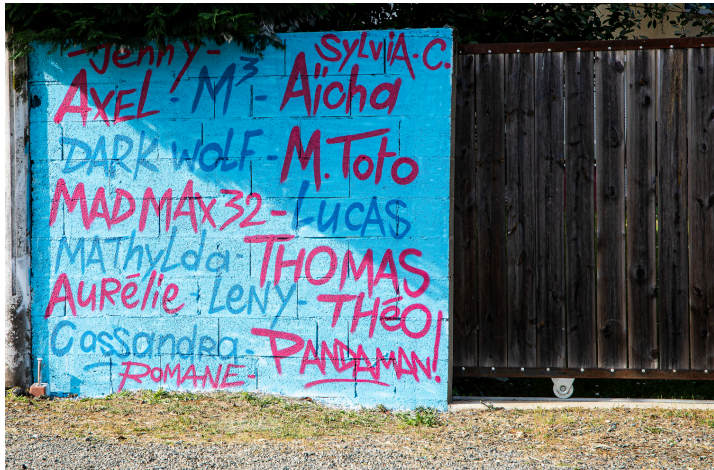 -Jenny- Sylvia.C.
Axel - M³ - Aïcha
Dark Wolf - M.Toto
MadMax32 - Lucas
Mathylda - Thomas
Aurélie - Leny - Théo!
Cassandra - Pandaman!
Romane